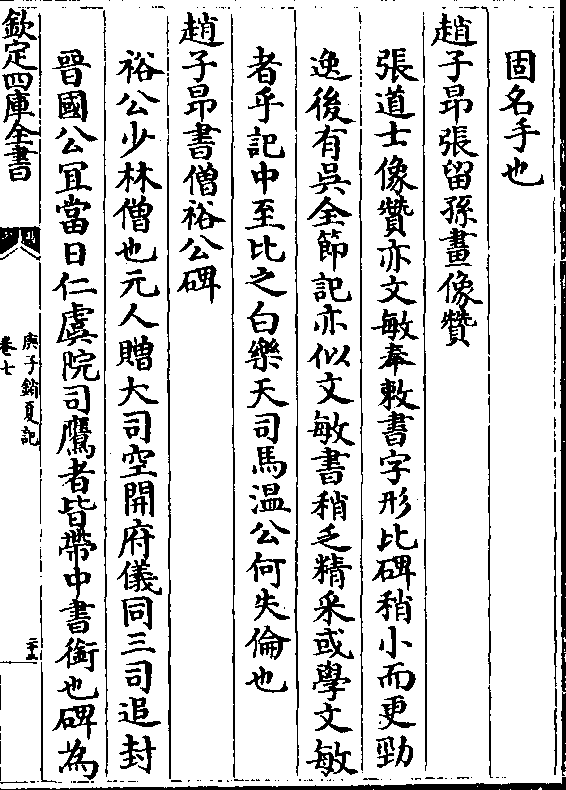 固名手也
趙子昂張留孫畫像贊
張道士像贊亦文敏奉敕書字形比碑稍小而更勁
逸後有吳全節記亦似文敏書稍乏精采或學文敏
者乎記中至比之白樂天司馬温公何失倫也
趙子昂書僧裕公碑
裕公少林僧也元人贈大司空開府儀同三司追封
晉國公冝當日仁虞院司鷹者皆帶中書銜也碑為
欽定四庫全書
庚子銷夏記
卷七
二十五